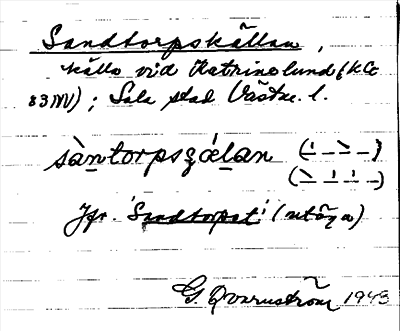 Sandtorpskällan,
källa vid Katrinelund (KC
83 NV); Sala stad Västm. l.
sàntorpsʒǽlan (– –)
Jfr. 'Sandtorpet' (utäga)
G. Qvarnström 1943